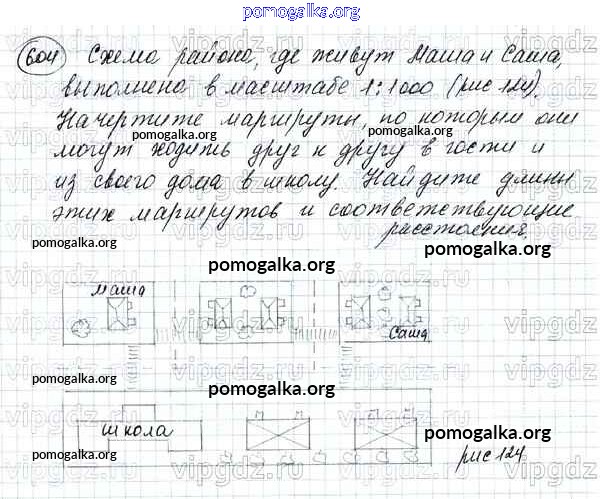 pomogalka.org
604 Схема района, где живут Маша и Саша,
pomogalka.org
выполнена в масштабе 1:1000 (рис 124).
Начертите маршруты, по которым они
pomogalka.org pomogalka.org
могут ходить друг к другу в гости и
из своего дома в школу. Найдите длины
этих маршрутов и соответствующие
pomogalka.org pomogalka.org
расстояния.
pomogalka.org
Маша
pomogalka.org pomogalka.org
Саша
pomogalka.org
pomogalka.org pomogalka.org
школа
pomogalka.org pomogalka.org
рис 124
vipgdz